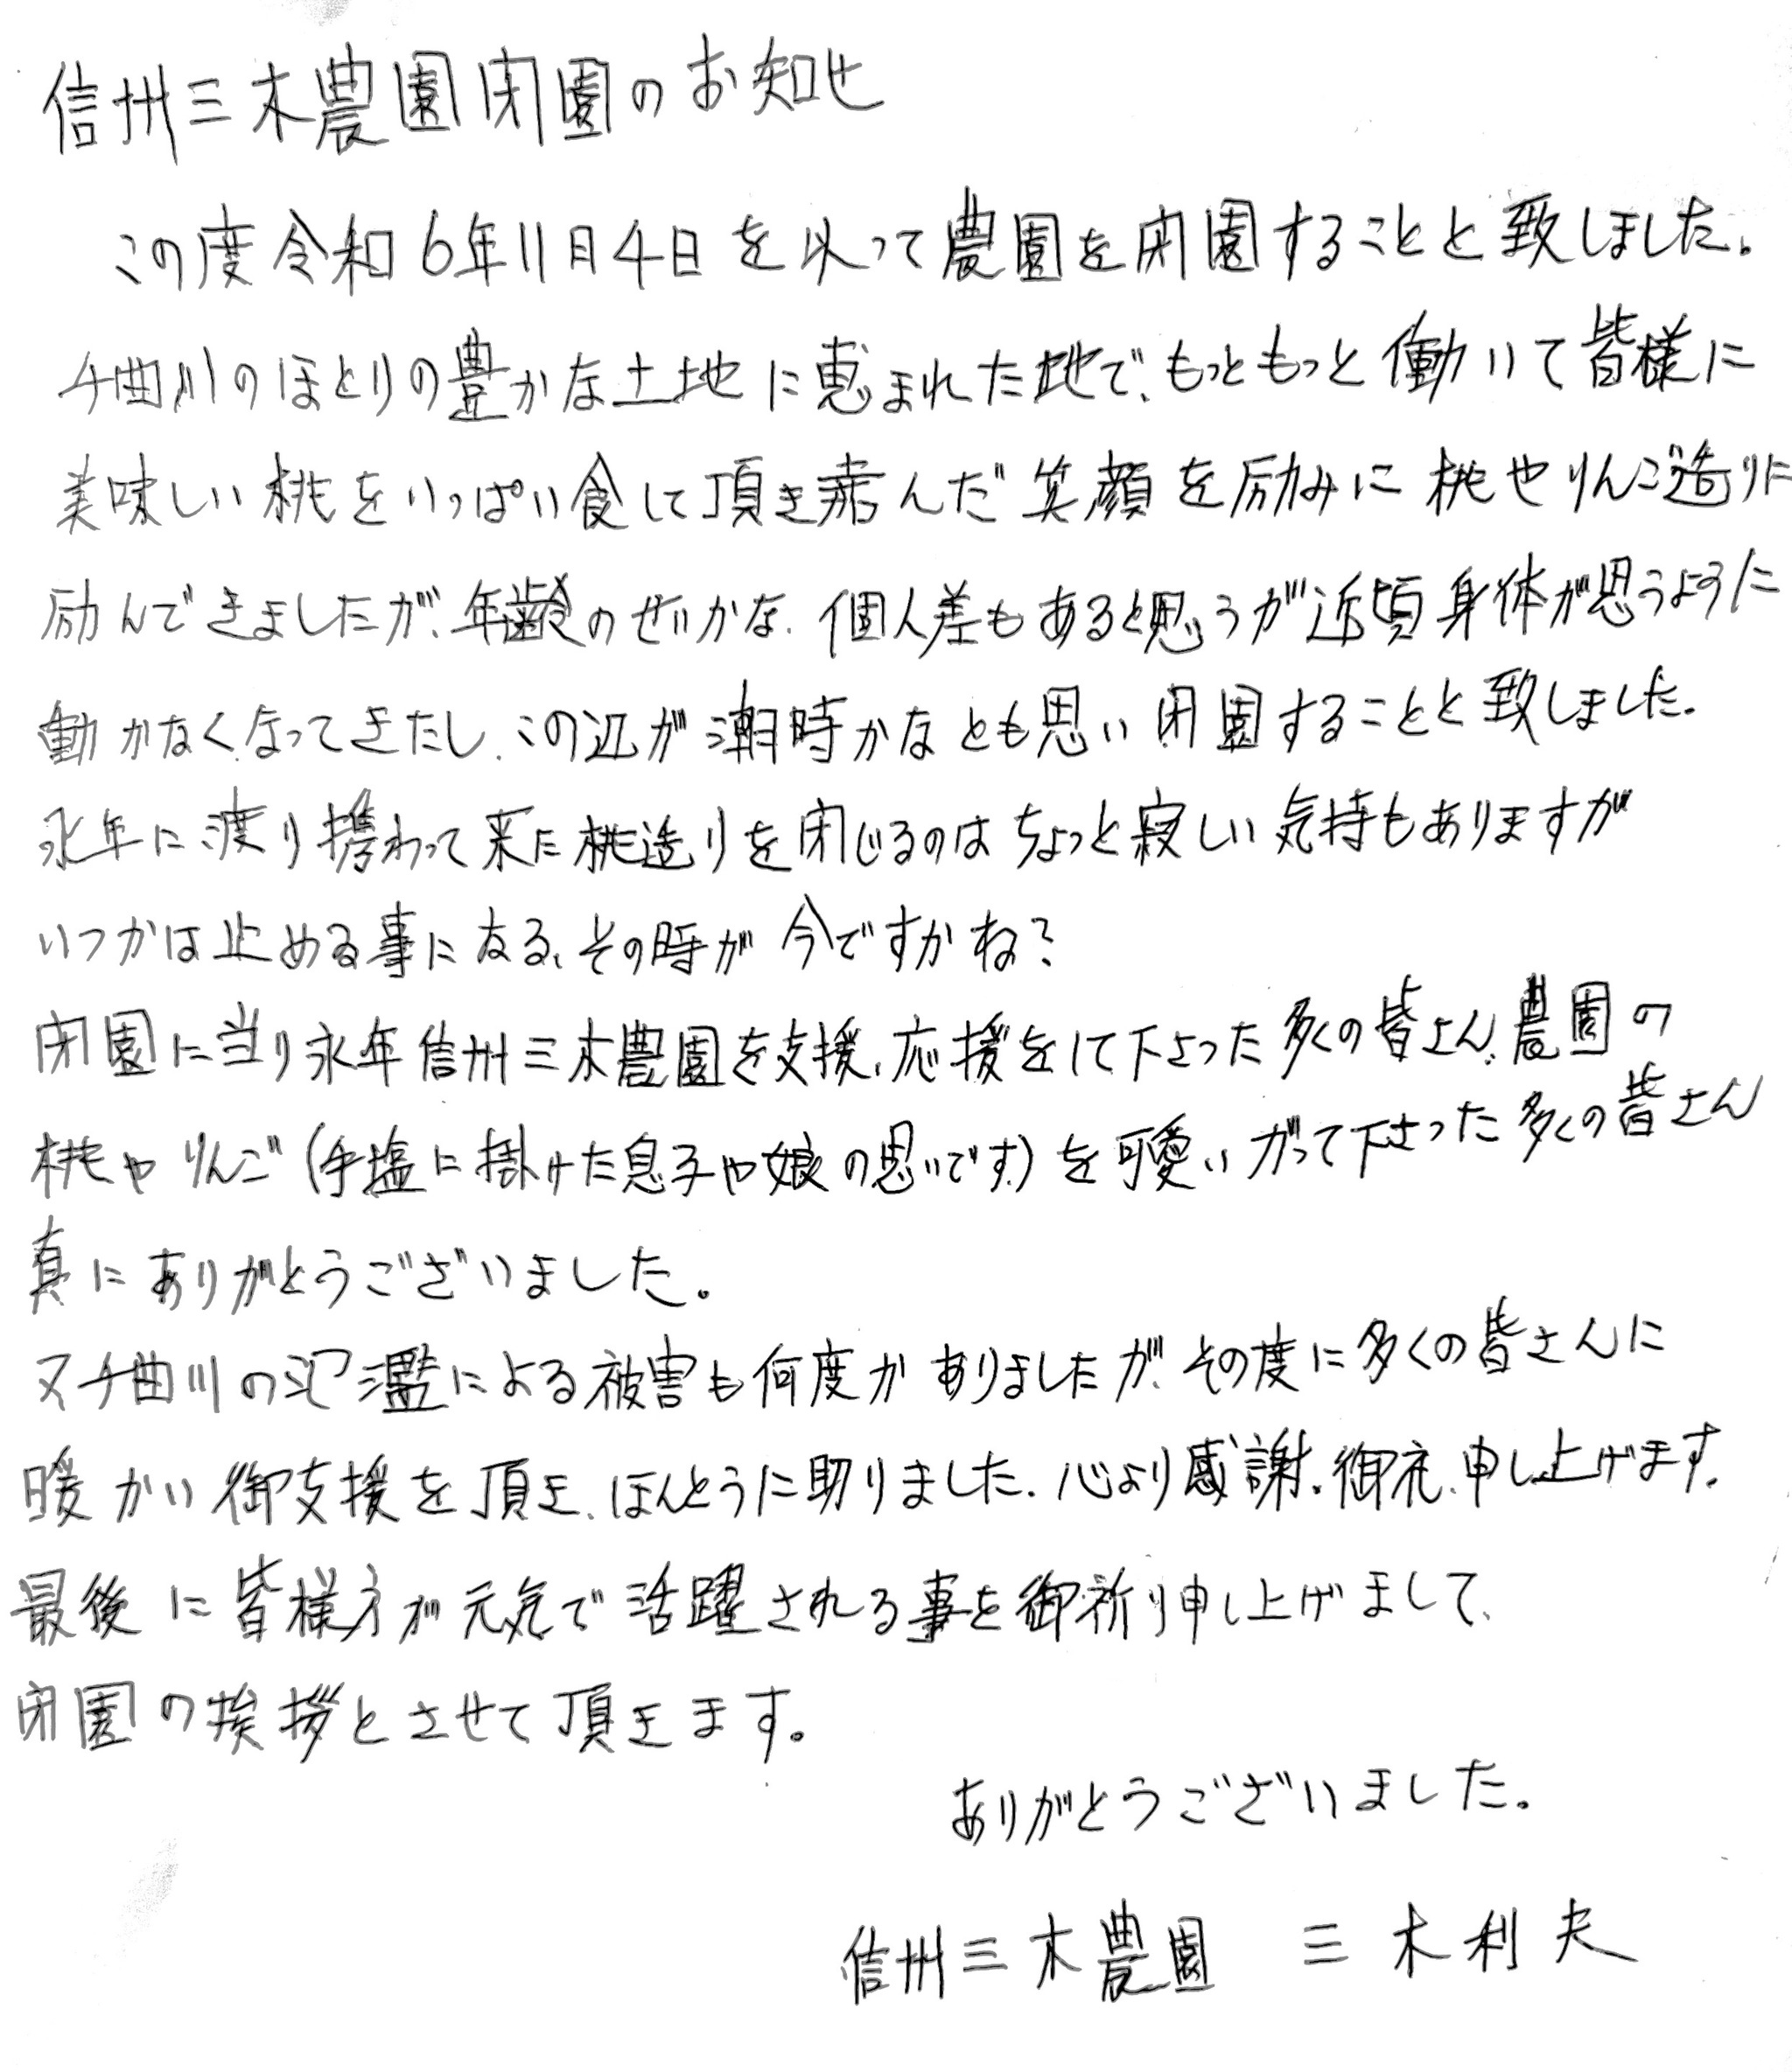 信州三木農園閉園のお知せ
この度令和6年11月4日を以って農園を閉園することと致しました。
千曲川のほとりの豊かな土地に恵まれた地で、もっともっと働いて皆様に
美味しい桃をいっぱい食して頂き喜んだ笑顔を励みに桃やりんご造りに
励んできましたが、年齢のせいかな、個人差もあると思うが近頃身体が思うように
動かなくなってきたし、この辺が潮時かなとも思い閉園することと致しました。
永年に渡り携わって来た桃造りを閉じるのはちょっと寂しい気持もありますが
いつかは止める事になる、その時が今ですかね?
閉園に当り永年信州三木農園を支援、応援をして下さった多くの皆さん、農園の
桃やりんご(手塩に掛けた息子や娘の思いです)を可愛いがって下さった多くの皆さん
真にありがとうございました。
又千曲川の氾濫による被害も何度かありましたが、その度に多くの皆さんに
暖かい御支援を頂き、ほんとうに助りました。心より感謝、御礼、申し上げます。
最後に皆様方が元気で活躍される事を御祈り申し上げまして、
閉園の挨拶とさせて頂きます。
ありがとうございました。
信州三木農園 三木利夫